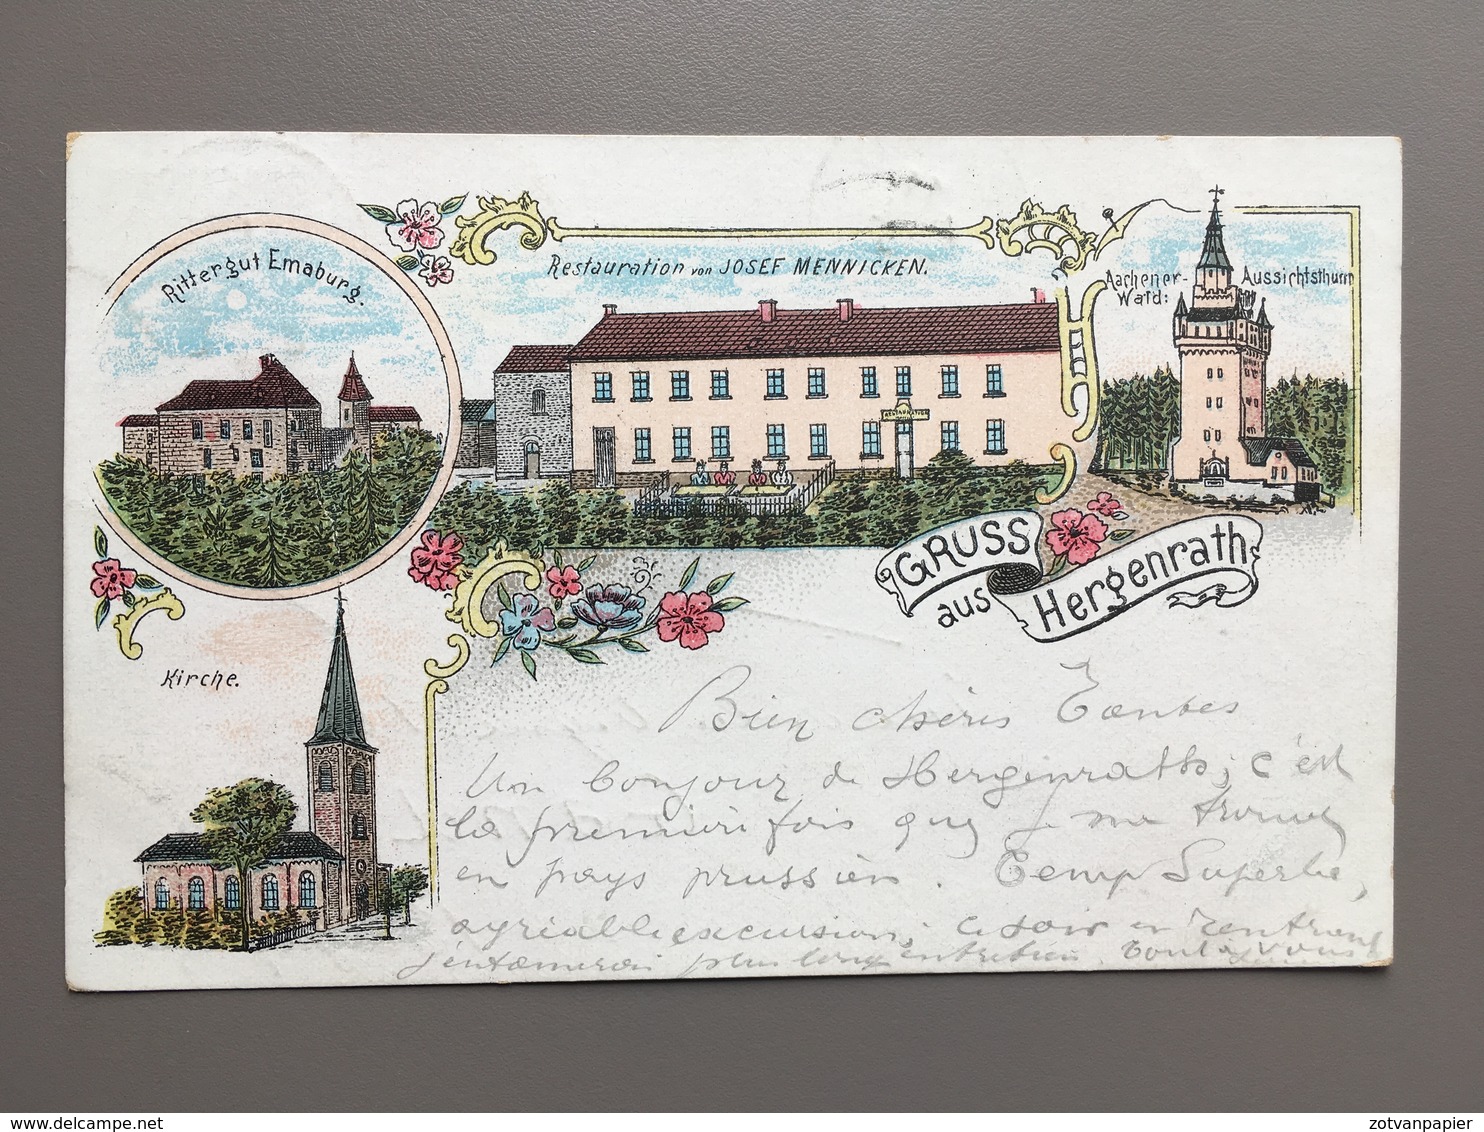 Rittergut Emaburg.
Restauration von JOSEF MENNICKEN.
Aachener-Wald: Aussichtsthurm
RESTAURATION
GRUSS
aus
Hergenrath
Kirche.
Bien chères Tantes
Un bonjour de Hergenrath; c'est
la première fois que je me trouve
en pays prussien. Temp superbe,
agréable excursion; ce soir en rentrant
j'entamerai plus long entretien. Tout à vous
delcampe.net
zotvanpapier